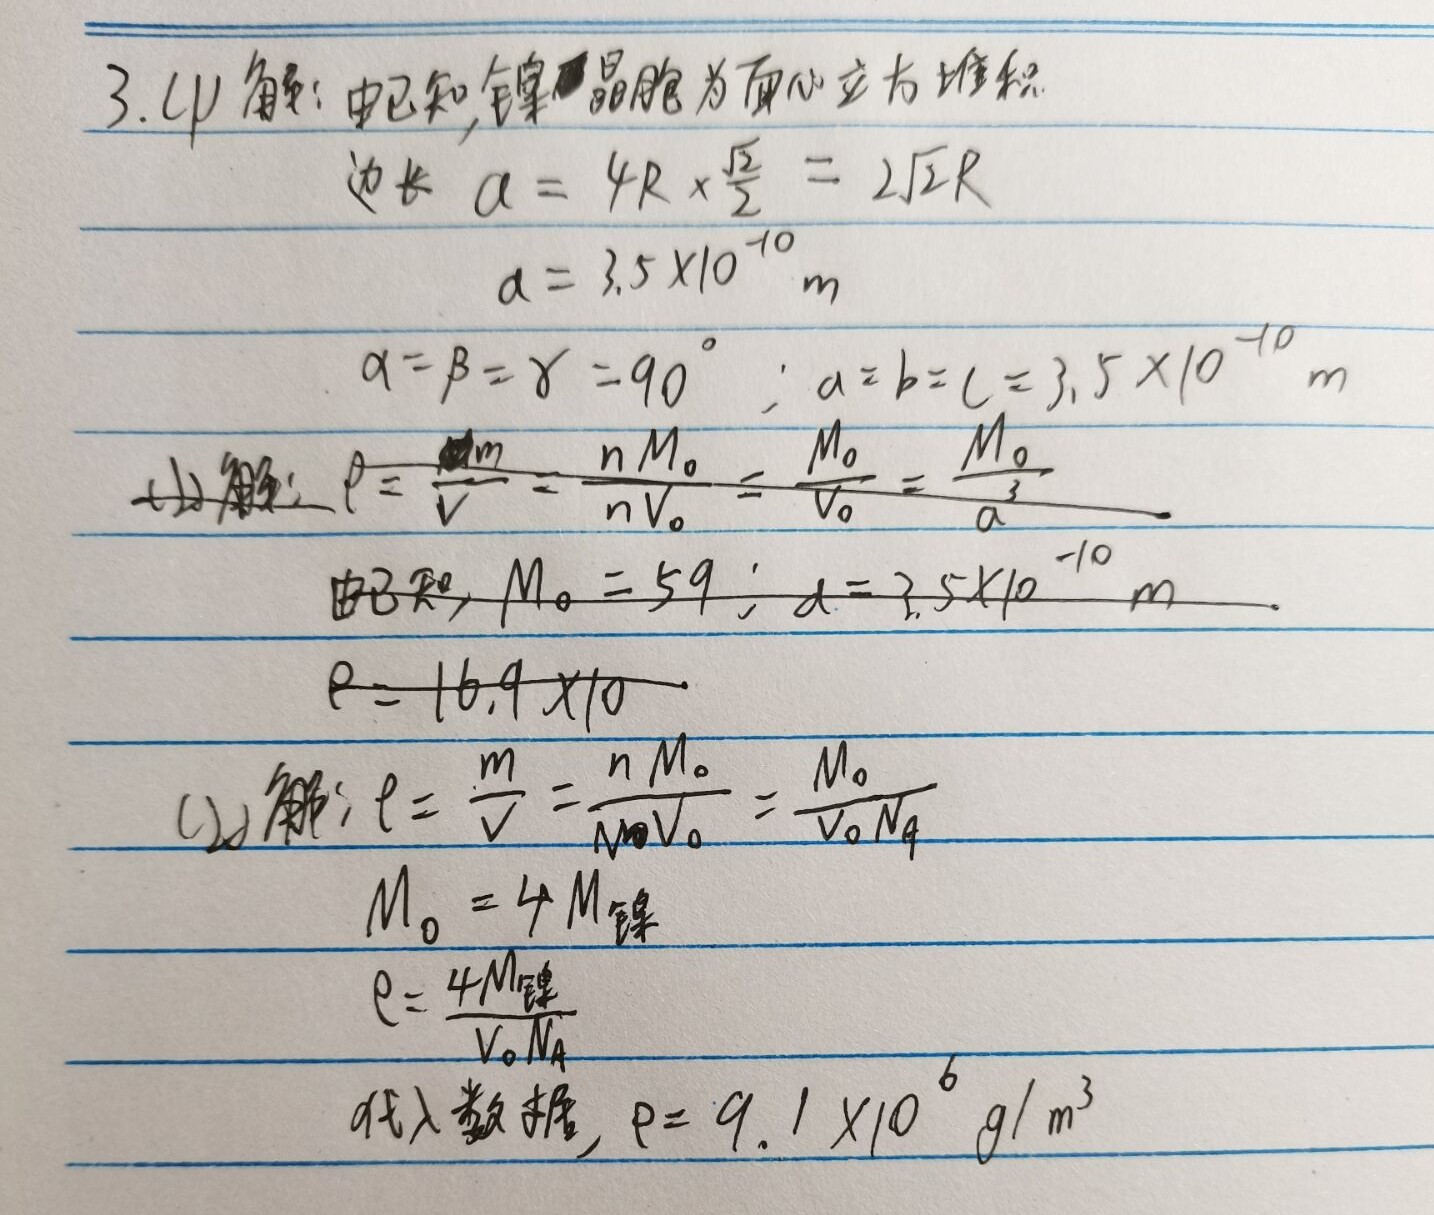 3.(1) 解: 由已知,镍晶胞为面心立方堆积
边长 a = 4R × √2/2 = 2√2R
a = 3.5×10⁻¹⁰ m
α = β = γ = 90° ; a = b = c = 3.5×10⁻¹⁰ m
(2) 解: ρ = m/V = nM₀/nV₀ = M₀/V₀ = M₀/a³
由已知, M₀ = 59 ; a = 3.5×10⁻¹⁰ m
ρ = 16.9 ×10
(2) 解: ρ = m/V = nM₀/NV₀ = M₀/V₀N_A
M₀ = 4M镍
ρ = 4M镍/V₀N_A
代入数据, ρ = 9.1×10⁶ g/m³